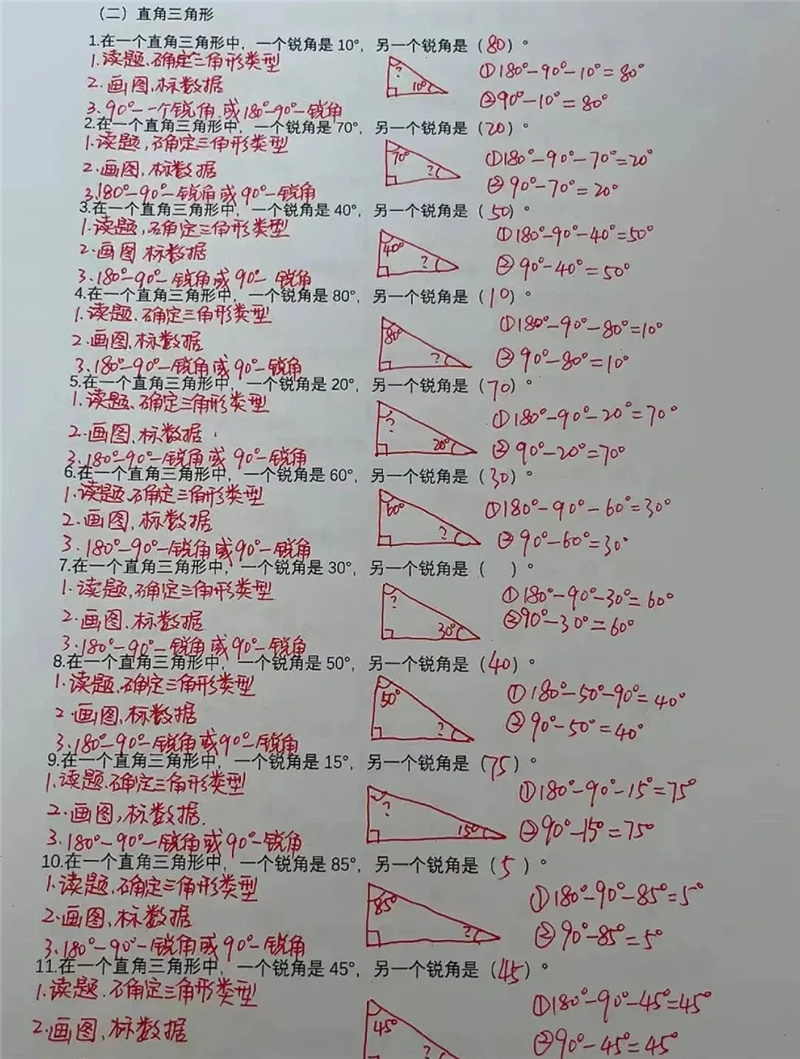 （二）直角三角形
1.在一个直角三角形中，一个锐角是 10°，另一个锐角是（80）。
1.读题.确定三角形类型
2.画图，标数据
3.90°-一个锐角.或180°-90°-锐角
? 10°
①180°-90°-10°=80°
②90°-10°=80°
2.在一个直角三角形中，一个锐角是 70°，另一个锐角是（20）。
1.读题，确定三角形类型
2.画图，标数据
3.180°-90°-锐角或90°-锐角
70° ?
①180°-90°-70°=20°
②90°-70°=20°
3.在一个直角三角形中，一个锐角是 40°，另一个锐角是（50）。
1.读题，确定三角形类型
2.画图.标数据
3.180°-90°-锐角或90°-锐角
40° ?
①180°-90°-40°=50°
②90°-40°=50°
4.在一个直角三角形中，一个锐角是 80°，另一个锐角是（10）。
1.读题.确定三角形类型
2.画图，标数据
3.180°-90°-锐角或90°-锐角
80° ?
①180°-90°-80°=10°
②90°-80°=10°
5.在一个直角三角形中，一个锐角是 20°，另一个锐角是（70）。
1.读题.确定三角形类型
2.画图，标数据.
3.180°-90°-锐角或90°-锐角
? 20°
①180°-90°-20°=70°
②90°-20°=70°
6.在一个直角三角形中，一个锐角是 60°，另一个锐角是（30）。
1.读题.确定三角形类型
2.画图，标数据
3.180°-90°-锐角或90°-锐角
60° ?
①180°-90°-60°=30°
②90°-60°=30°
7.在一个直角三角形中，一个锐角是 30°，另一个锐角是（ ）。
1.读题.确定三角形类型
2.画图.标数据
3.180°-90°-锐角或90°-锐角
? 30°
①180°-90°-30°=60°
②90°-30°=60°
8.在一个直角三角形中，一个锐角是 50°，另一个锐角是（40）。
1.读题.确定三角形类型
2.画图，标数据
3.180°-90°-锐角或90°-锐角
50° ?
①180°-50°-90°=40°
②90°-50°=40°
9.在一个直角三角形中，一个锐角是 15°，另一个锐角是（75）。
1.读题.确定三角形类型
2.画图，标数据.
3.180°-90°-锐角或90°-锐角
? 15°
①180°-90°-15°=75°
②90°-15°=75°
10.在一个直角三角形中，一个锐角是 85°，另一个锐角是（5）。
1.读题.确定三角形类型
2.画图，标数据
3.180°-90°-锐角或90°-锐角
85° ?
①180°-90°-85°=5°
②90°-85°=5°
11.在一个直角三角形中，一个锐角是 45°，另一个锐角是（45）。
1.读题.确定三角形类型
2.画图，标数据
45° ?
①180°-90°-45°=45°
②90°-45°=45°